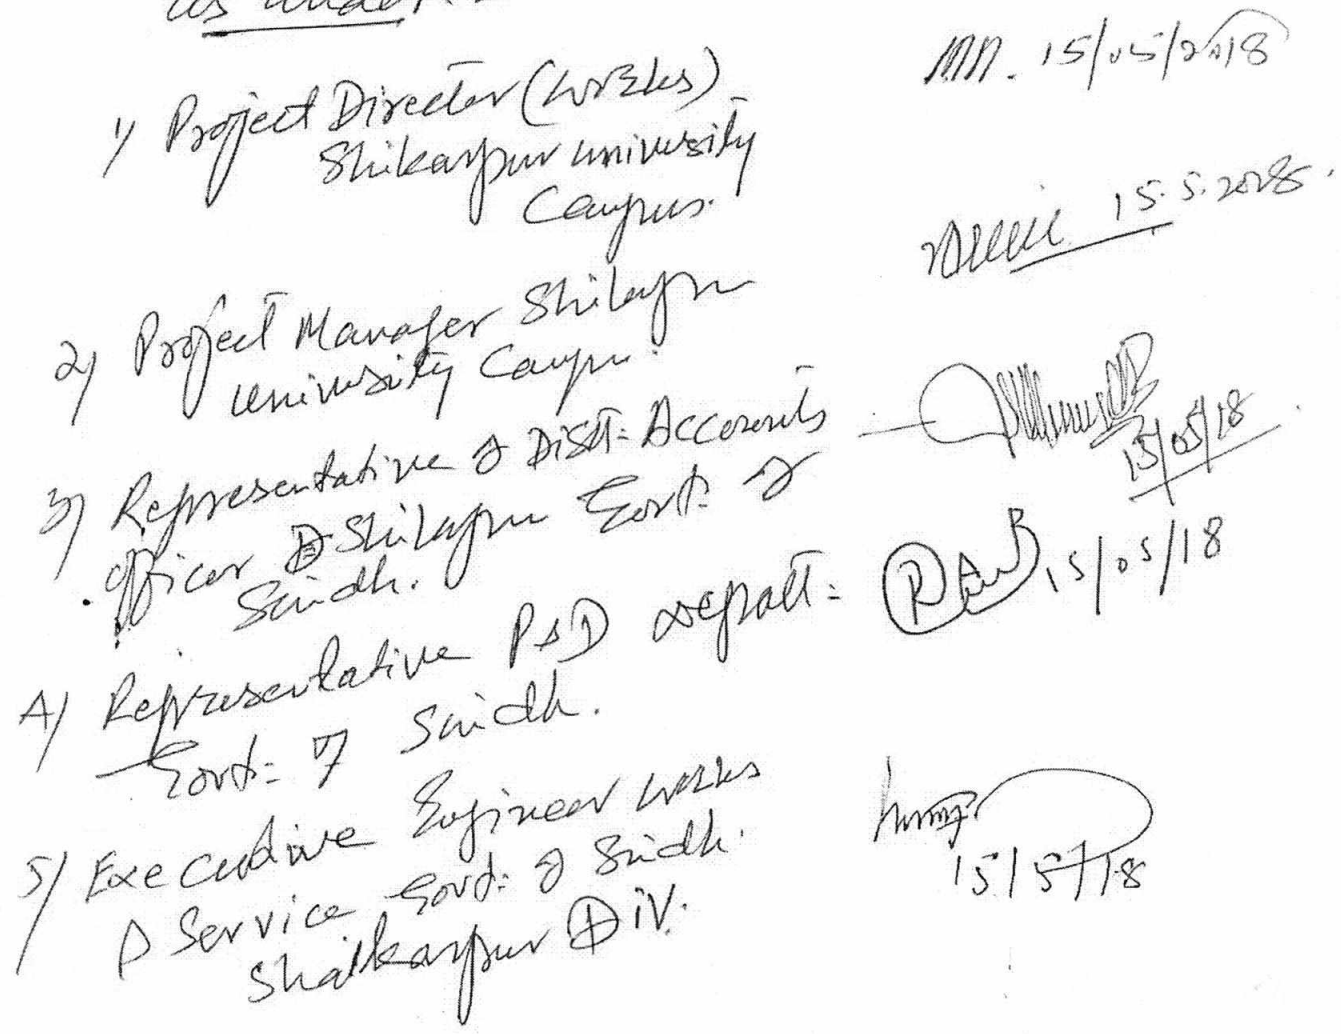 as under:-
1) Project Director (works) 15/05/2018
Shikarpur university
Campus.
15.5.2018.
2) Project Manager Shikarpur
university Campus.
3) Representative of Distt: Accounts
officer Shikarpur Govt: of
Sindh.
15/05/18
4) Representative P&D depatt: 15/05/18
Govt: of Sindh.
5) Executive Engineer works
& Service Govt: of Sindh.
Shaikarpur Div.
15/5/18